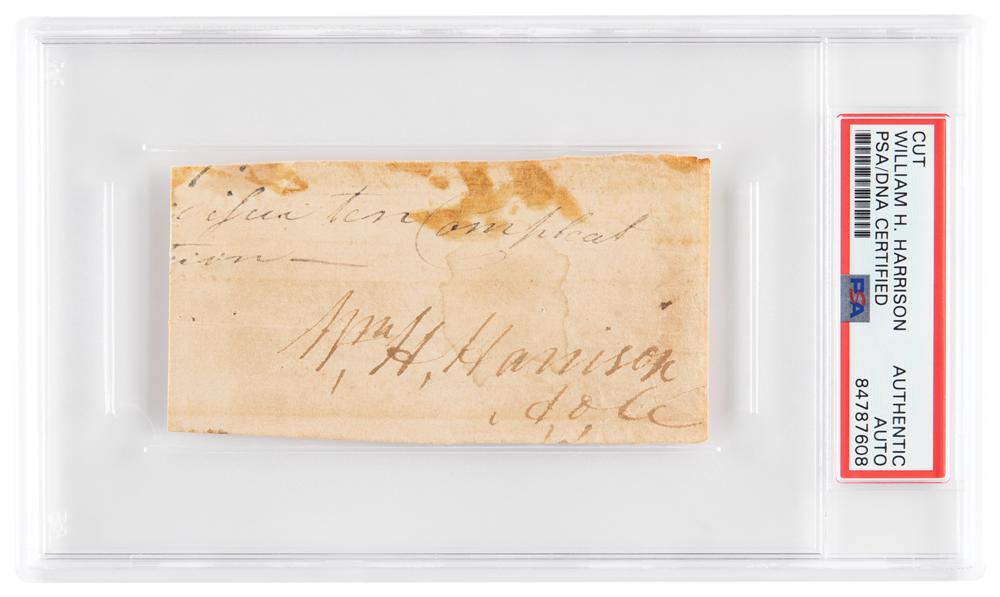 ten Compleat
tion —
Wm. H. Harrison
CUT
WILLIAM H. HARRISON AUTHENTIC
PSA/DNA CERTIFIED AUTO
84787608
PSA